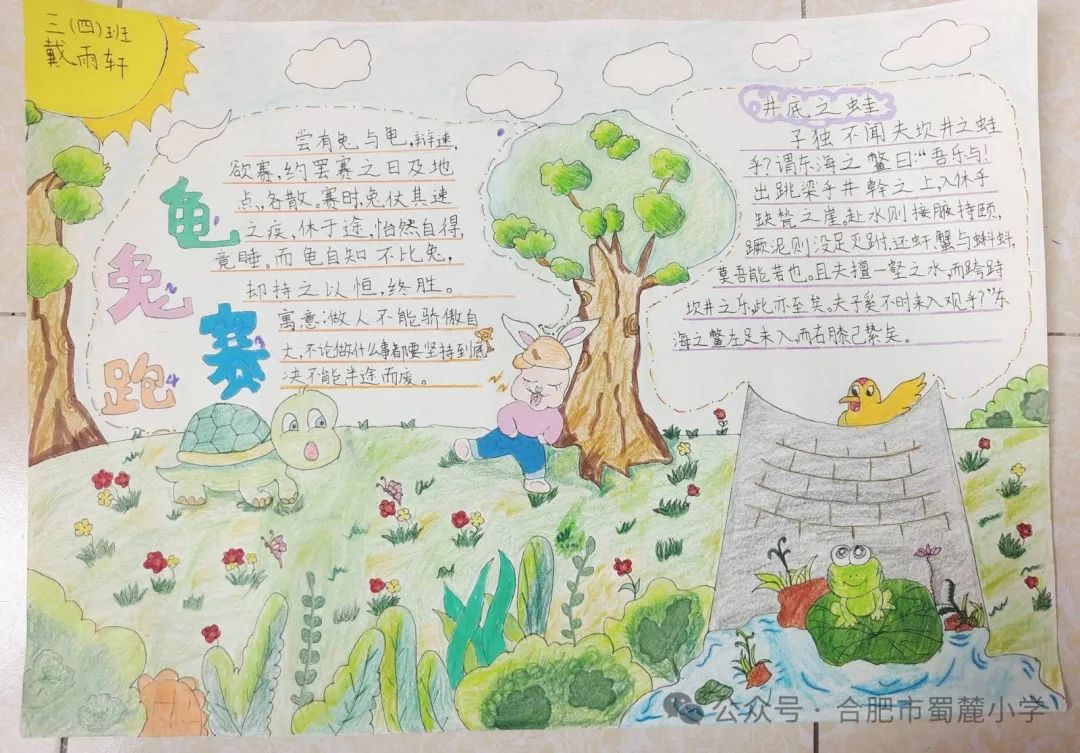 三(四)班
戴雨轩
龟
兔
赛
跑
尝有兔与龟,辩速,
欲赛,约罢赛之日及地
点、各散。赛时,兔仗其速
之疾,休于途,怡然自得,
竟睡。而龟自知不比兔,
却持之以恒,终胜。
寓意:做人不能骄傲自
大,不论做什么事都要坚持到底
决不能半途而废。
井底之蛙
子独不闻夫坎井之蛙
乎?谓东海之鳖曰:“吾乐与!
出跳梁乎井幹之上,入休乎
缺甃之崖。赴水则接腋持颐,
蹶泥则没足灭跗,还虷蟹与蝌蚪,
莫吾能若也。且夫擅一壑之水,而跨跱
坎井之乐,此亦至矣。夫子奚不时来入观乎?”东
海之鳖左足未入,而右膝已絷矣。
公众号·合肥市蜀麓小学